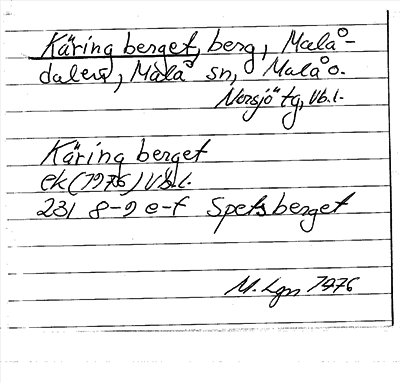 Käringberget, berg, Malå-
dalens, Malå sn, Malå o.
Norsjö tg, Vb.l.
Käringberget
ek (1976) Vb.l.
231 8-9 e-f Spetsberget
M. Lgn 1976